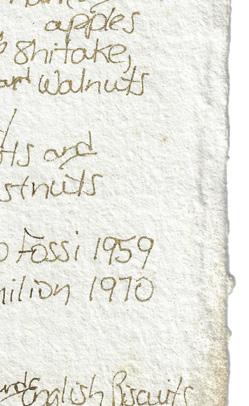 apples
Shitake,
and Walnuts
and
stnuts
Fossi 1959
milion 1970
English Biscuits